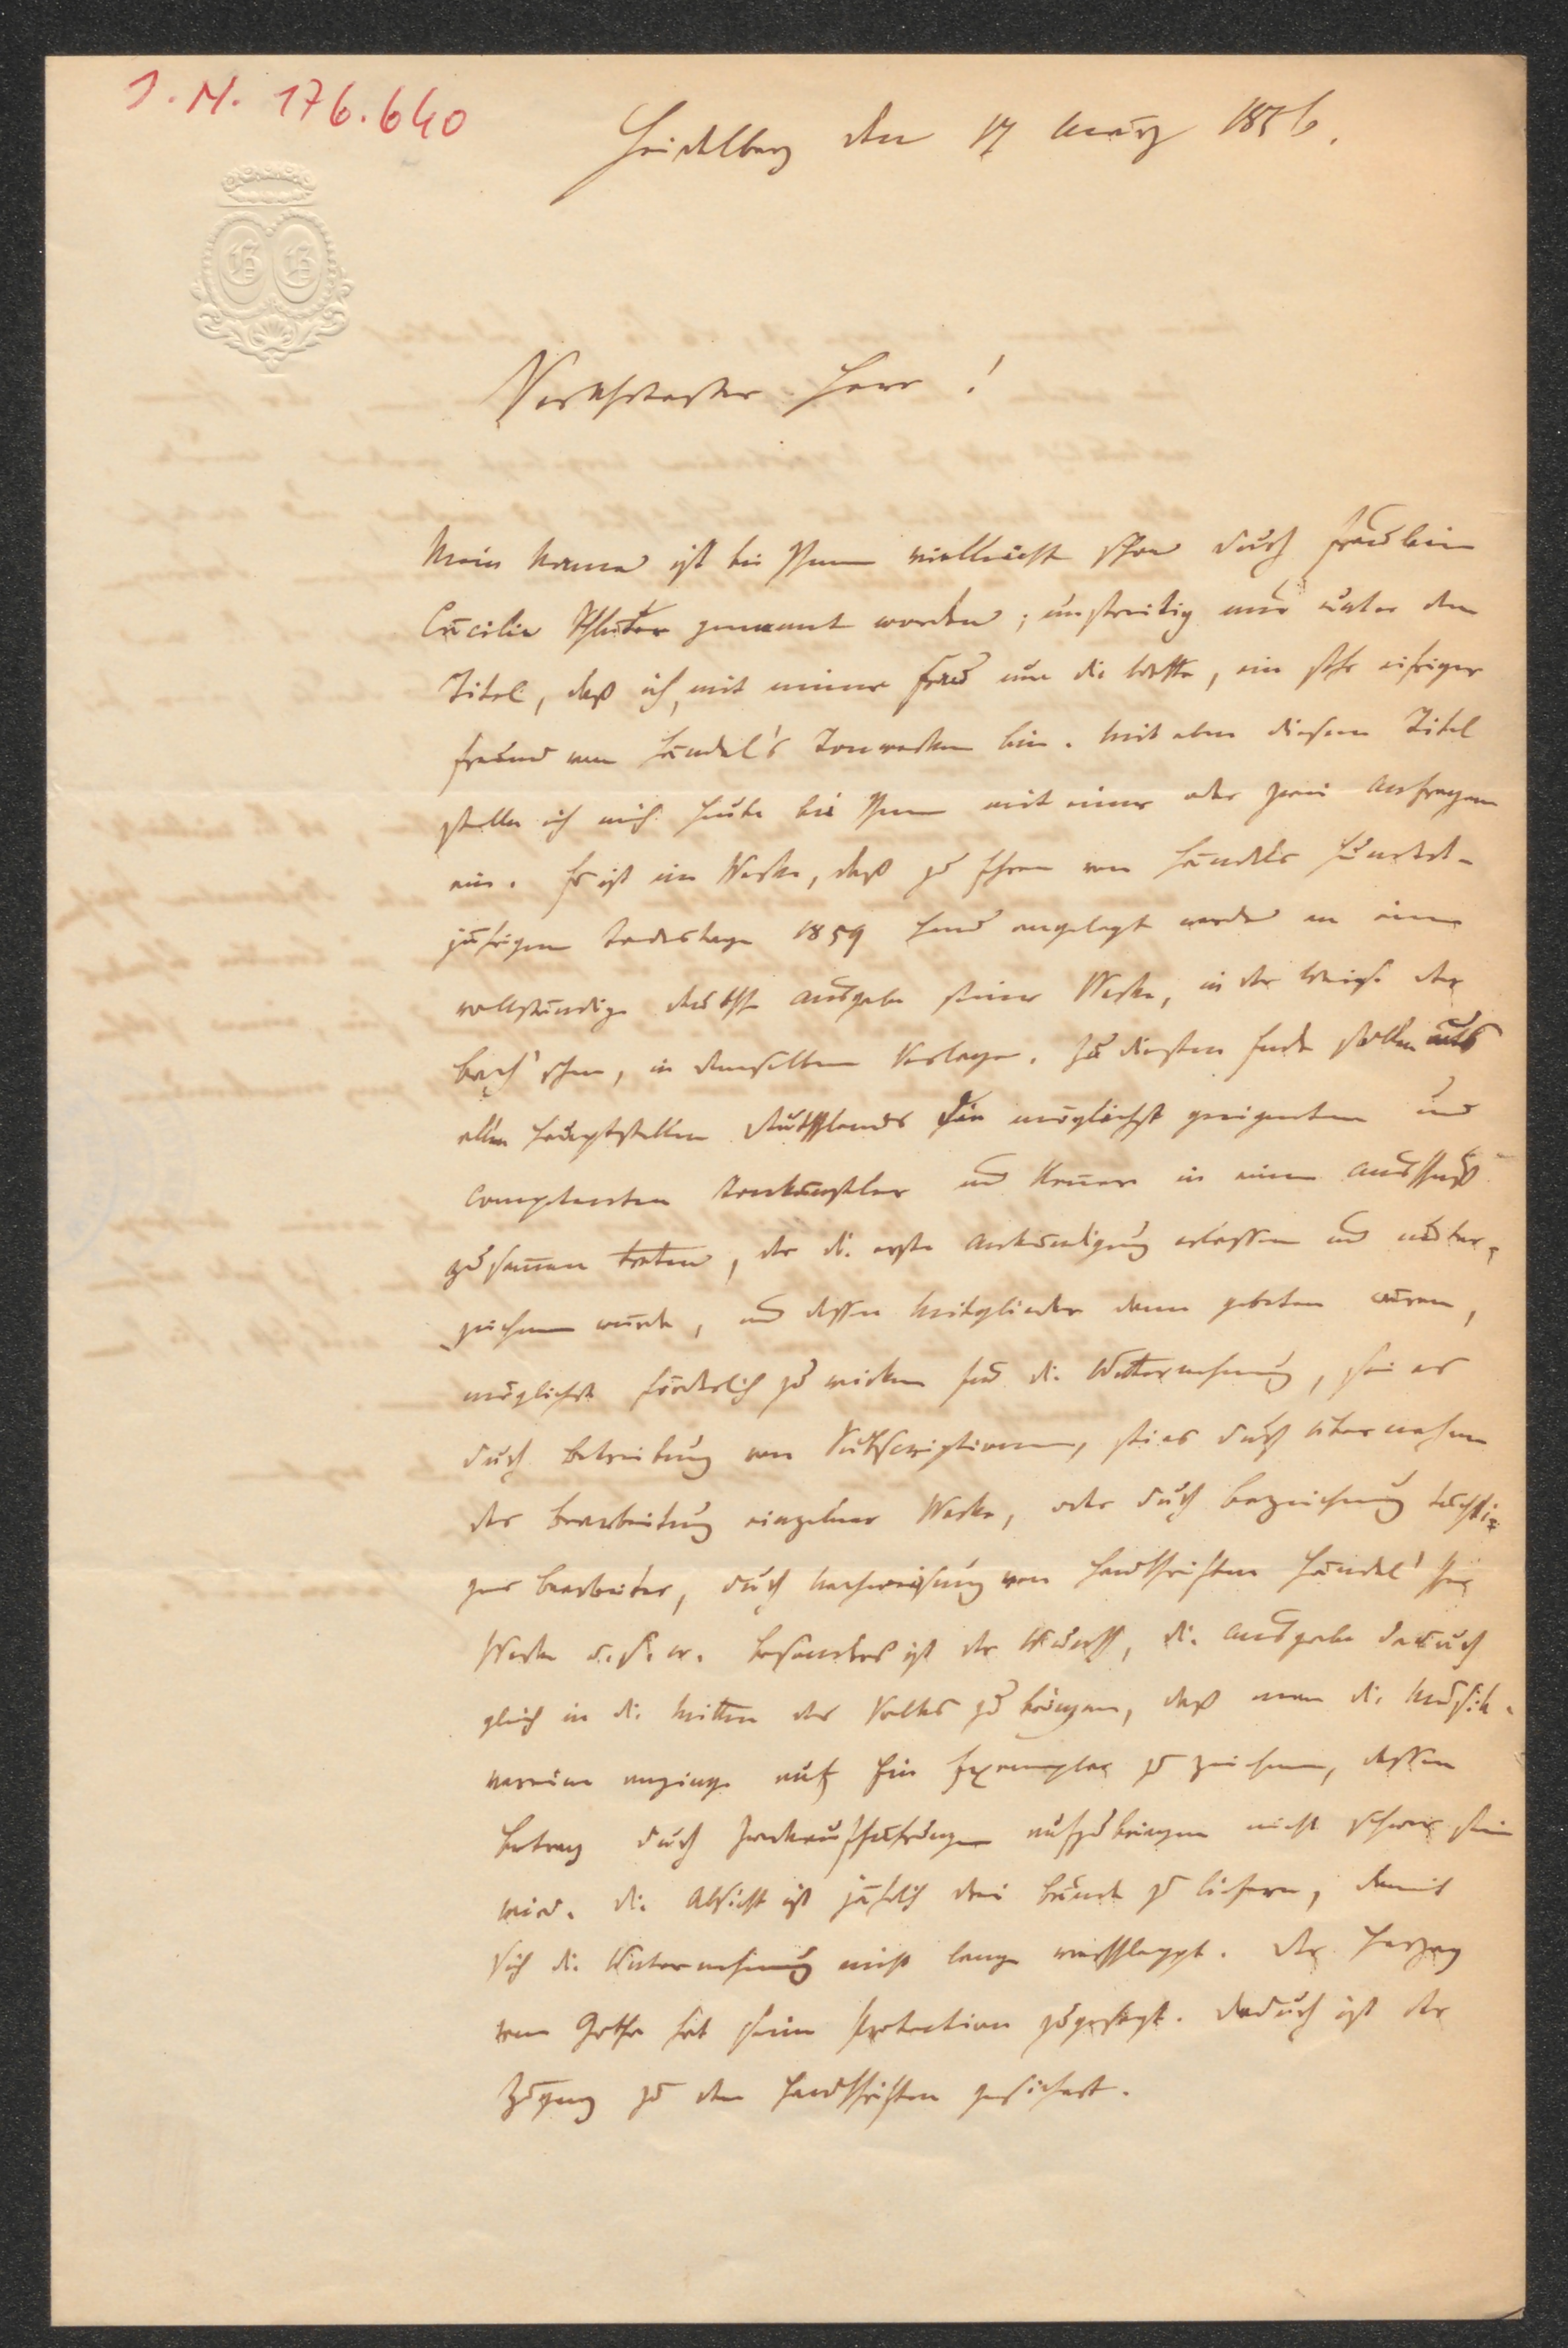 J.N. 176.640
Heidelberg den 17 März 1856.
G G
Verehrtester Herr!
Mein Name ist bei Ihnen vielleicht schon durch Fräulein
Cäcilie genannt worden; unstreitig nur unter dem
Titel, daß ich, mit meiner Frau um die Wette, ein sehr eifriger
Freund von Händel's Tonwerken bin. Mit eben diesem Titel
stelle ich mich heute bei Ihnen mit einer oder zwei Anfragen
ein. Es ist im Werke, daß zu Ehren von Händels hundert-
jährigem Todestage 1859 Hand angelegt werde an eine
vollständige deutsche Ausgabe seiner Werke, in der Weise der
Bach'schen, in demselben Verlage. Zu diesem Ende sollen aus
allen Hauptstellen Deutschlands die möglichst geeigneten und
competenten Tonkünstler und Kenner in einen Ausschuß
zusammen treten, der die erste Ankündigung erlassen und unter-
zeichnen würde, und dessen Mitglieder dann gebeten wären,
möglichst förderlich zu wirken für die Unternehmung, sei es
durch Betreibung von Subscriptionen, sei es durch Übernahme
der Bearbeitung einzelner Werke, oder durch Bezeichnung tüchti-
ger Bearbeiter, durch Nachweisung von Handschriften Händel'scher
Werke u. s. w. Besonders ist der Wunsch, die Ausgabe dadurch
gleich in die Mitten des Volkes zu bringen, daß man die Musik-
vereine anginge auf Ein Exemplar zu zeichnen, dessen
Betrag durch Zweckaufführungen aufzubringen nicht schwer sein
wird. Die Absicht ist jährlich drei Bände zu liefern, damit
sich die Unternehmung nicht lange verschleppt. Der Herzog
von Gotha hat seine Protection zugesagt. Dadurch ist der
Zugang zu den Handschriften gesichert.